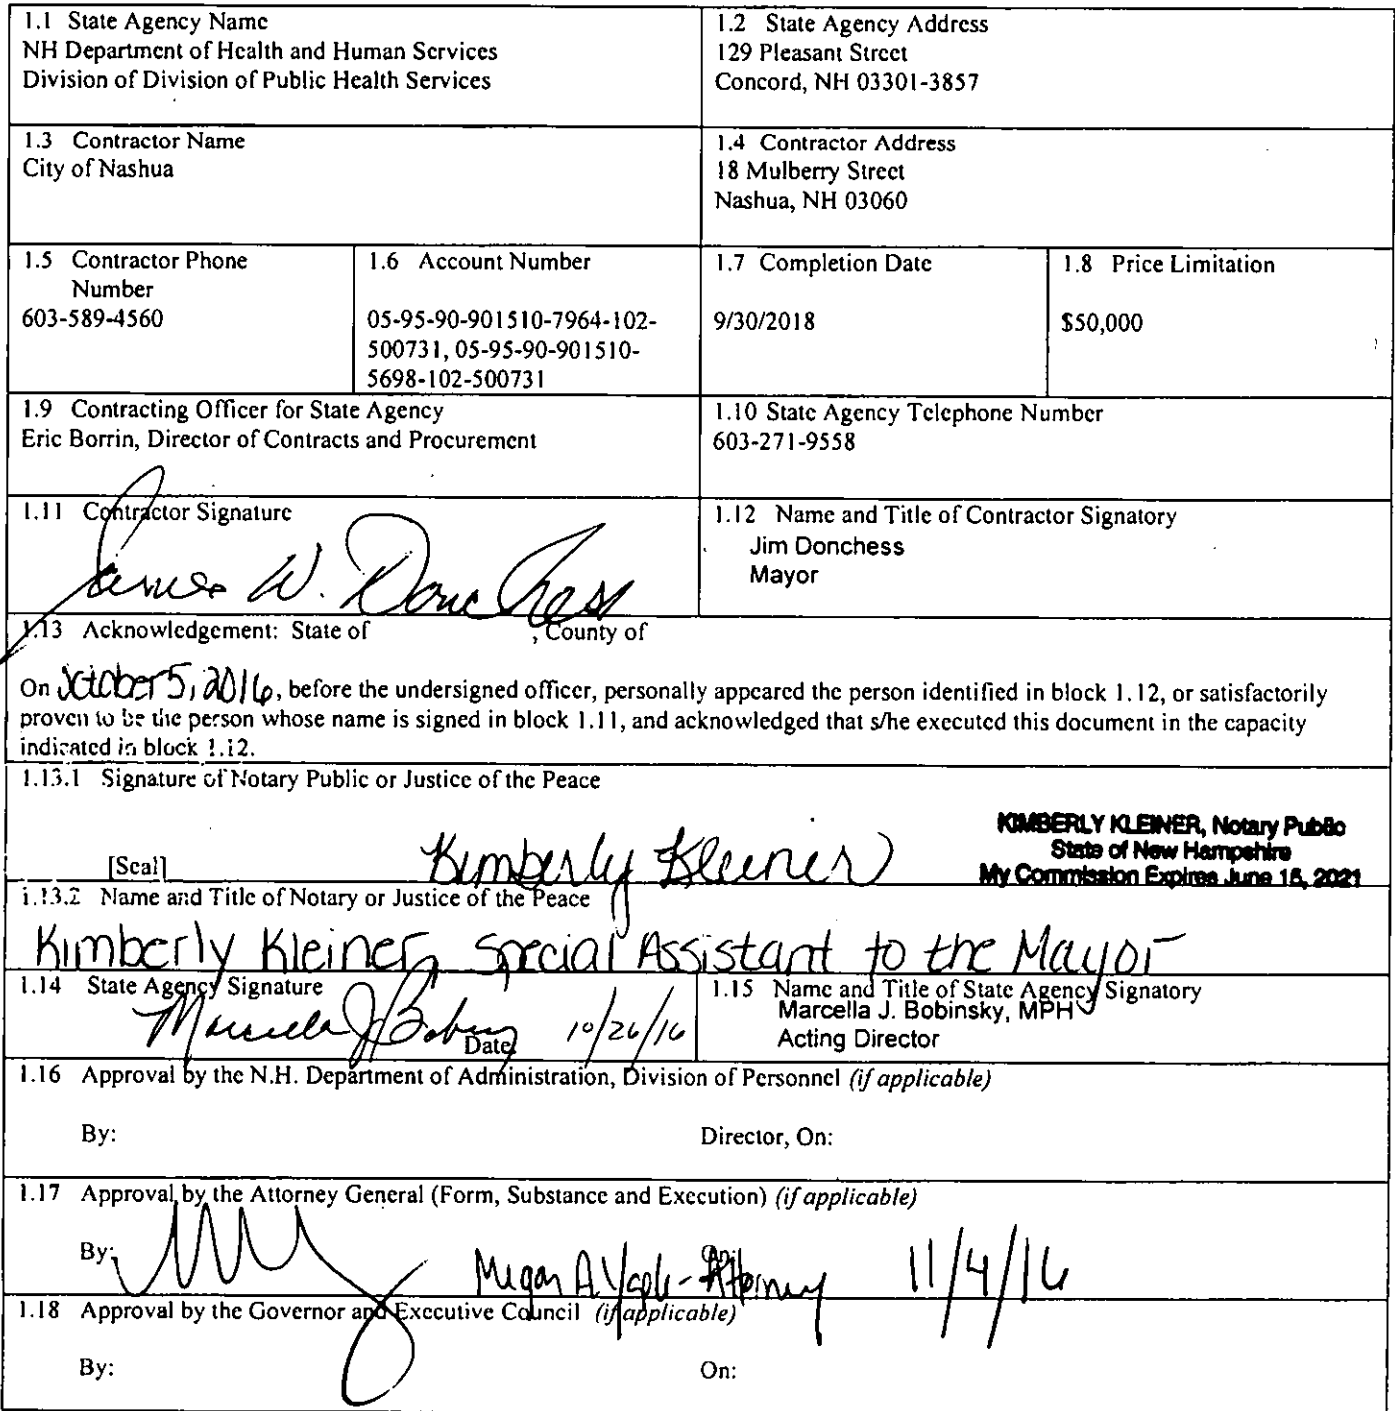 1.1 State Agency Name
NH Department of Health and Human Services
Division of Division of Public Health Services
1.2 State Agency Address
129 Pleasant Street
Concord, NH 03301-3857
1.3 Contractor Name
City of Nashua
1.4 Contractor Address
18 Mulberry Street
Nashua, NH 03060
1.5 Contractor Phone
Number
603-589-4560
1.6 Account Number
05-95-90-901510-7964-102-
500731, 05-95-90-901510-
5698-102-500731
1.7 Completion Date
9/30/2018
1.8 Price Limitation
$50,000
1.9 Contracting Officer for State Agency
Eric Borrin, Director of Contracts and Procurement
1.10 State Agency Telephone Number
603-271-9558
1.11 Contractor Signature
James W. Donchess
1.12 Name and Title of Contractor Signatory
Jim Donchess
Mayor
1.13 Acknowledgement: State of , County of
On October 5, 2016, before the undersigned officer, personally appeared the person identified in block 1.12, or satisfactorily
proven to be the person whose name is signed in block 1.11, and acknowledged that s/he executed this document in the capacity
indicated in block 1.12.
1.13.1 Signature of Notary Public or Justice of the Peace
[Seal] Kimberly Kleiner
KIMBERLY KLEINER, Notary Public
State of New Hampshire
My Commission Expires June 15, 2021
1.13.2 Name and Title of Notary or Justice of the Peace
Kimberly Kleiner, Special Assistant to the Mayor
1.14 State Agency Signature
Marcella J Bobinsky Date 10/26/16
1.15 Name and Title of State Agency Signatory
Marcella J. Bobinsky, MPH
Acting Director
1.16 Approval by the N.H. Department of Administration, Division of Personnel (if applicable)
By: Director, On:
1.17 Approval by the Attorney General (Form, Substance and Execution) (if applicable)
By: Megan A. - Attorney On: 11/4/16
1.18 Approval by the Governor and Executive Council (if applicable)
By: On: